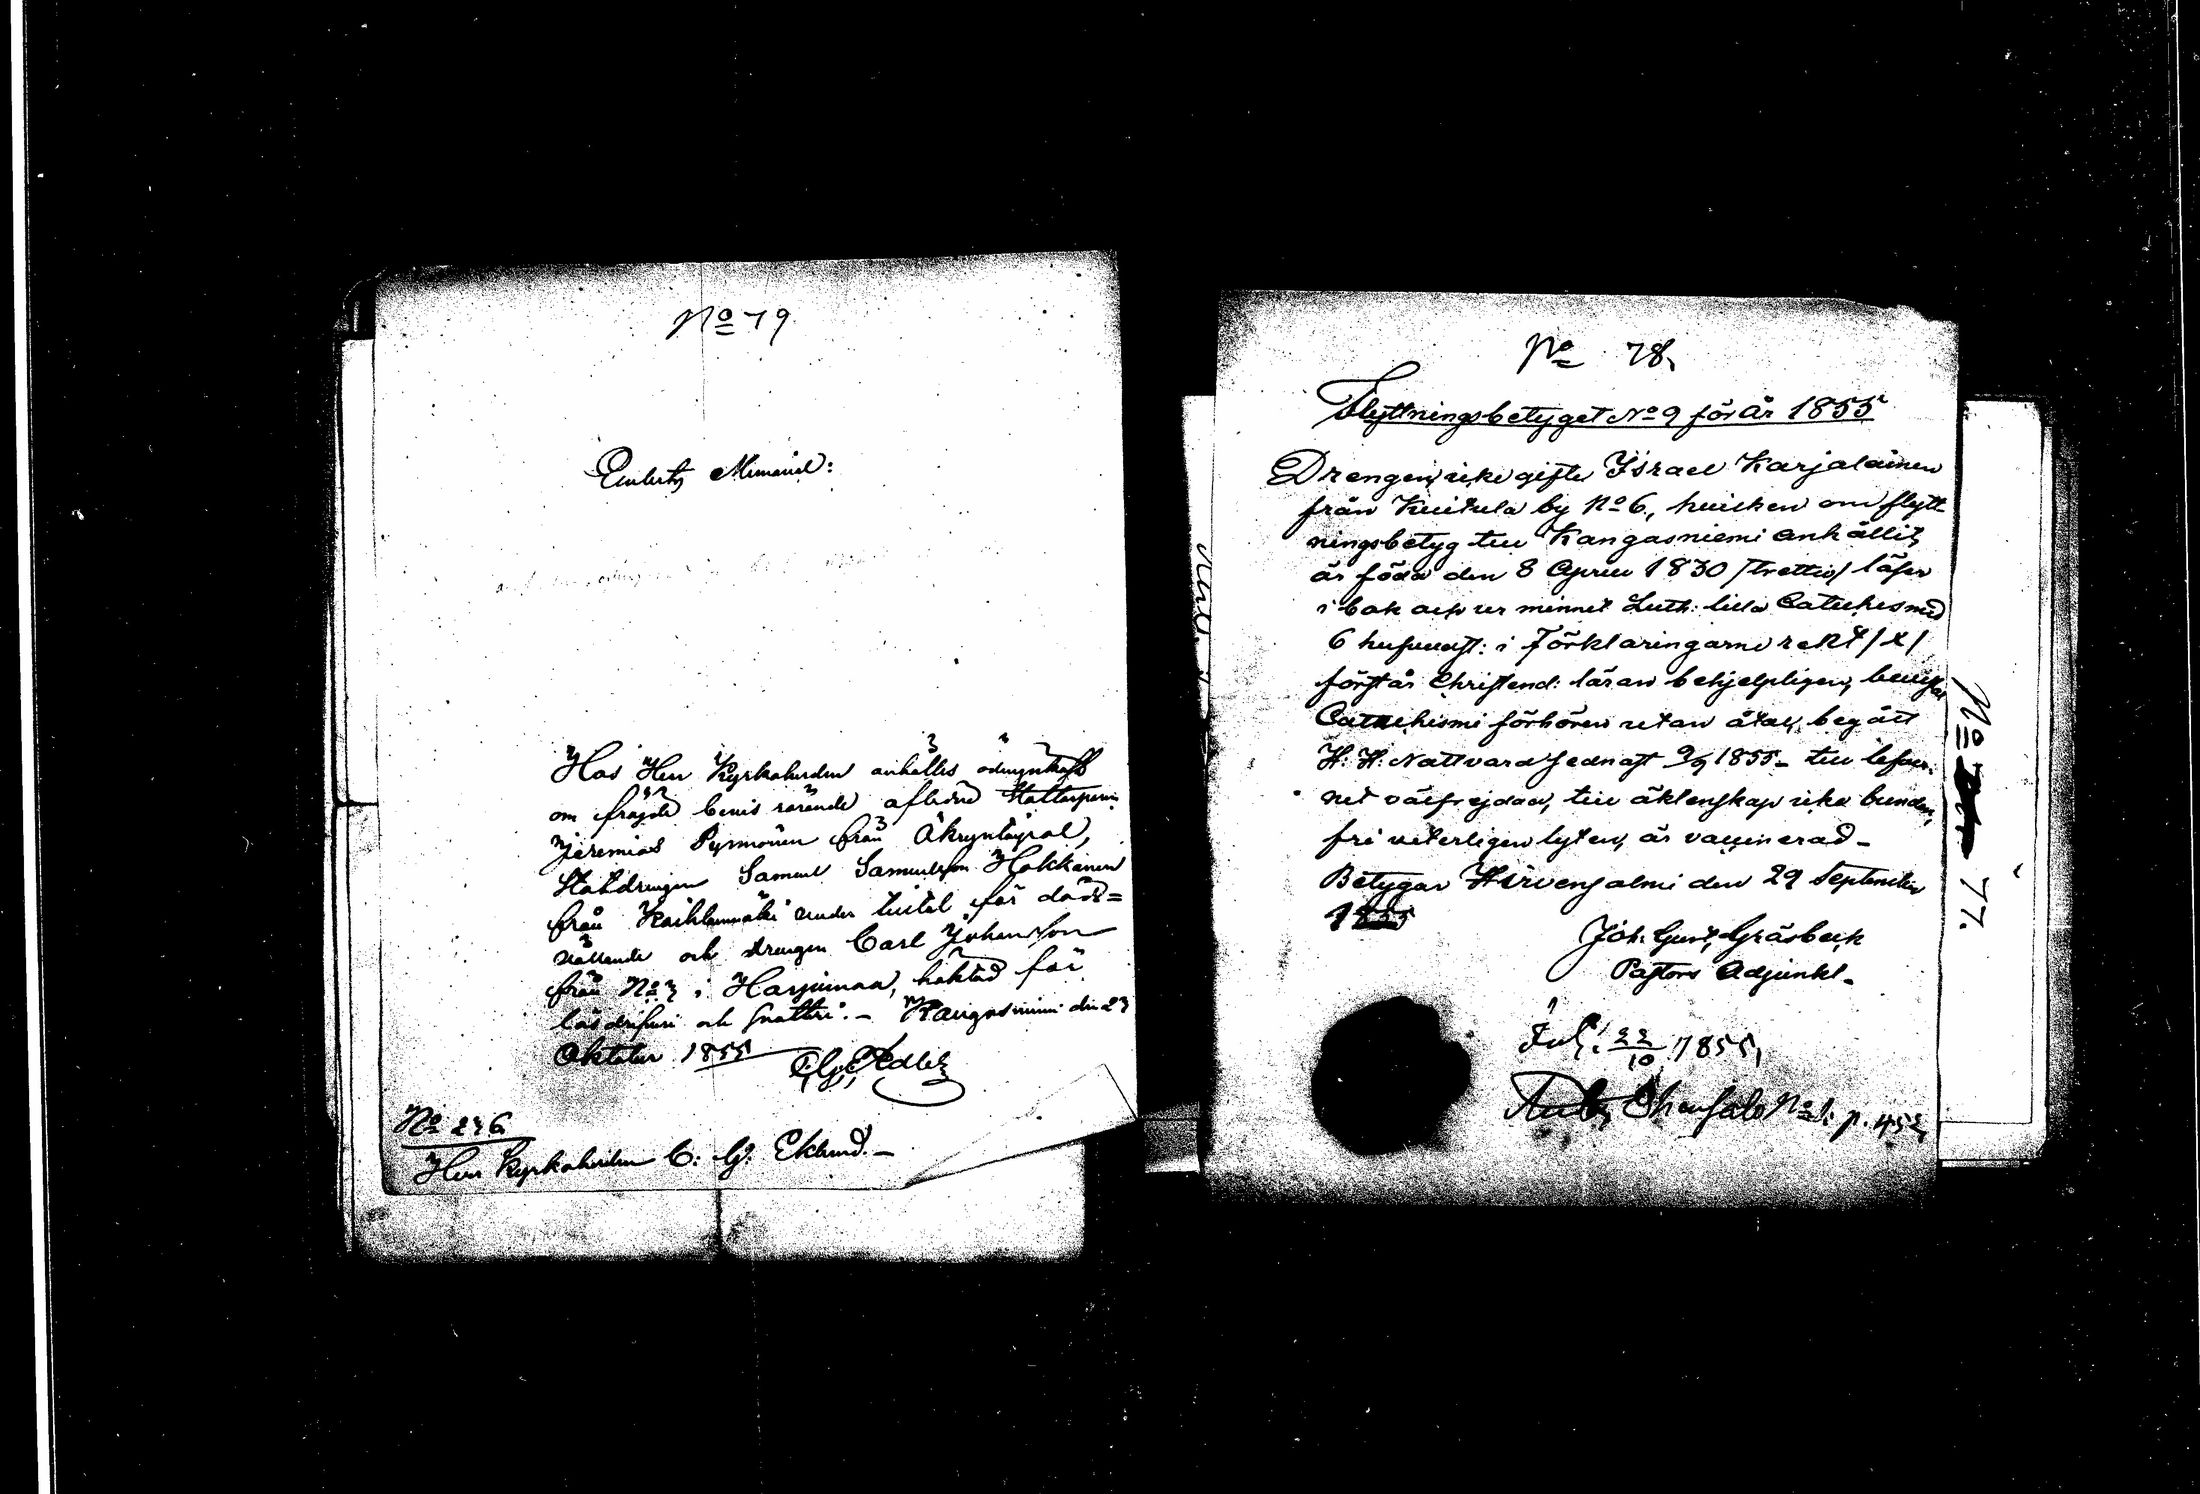 No 79
Embets Memorial:
Hos Herr Kyrkoherden anhålles ödmjukast
om frejde bevis rörande aflidne
Jeremias Pynnönen från
Statdrengen Samuel Samuelsson Hokkanen
från under tilltal för döds=
vållande och drengen Carl Johansson
från No 3 i Harjumaa, häktad för
lösdrifveri och snatteri. – Kangasniemi den 23
Oktober 1855
No 236
Herr Kyrkoherden C: G: Eklund. –
No 78,
Flyttningsbetyget No 9 för år 1855
Drengen, icke gifte Israel Karjalainen
från Kuitula by No 6, hvilken om flytt-
ningsbetyg till Kangasniemi anhållit,
är född den 8 April 1830 /trettio/ läser
i bok och ur minnet Luth: lilla Catechismo
6 hufvudst: i Förklaringarne /x/
förstår Christend: läran behjelpligen, bevistat
Catechismi förhören utan åtal, begått
H: H: Nattvard sednast 9/9 1855 – till lefver-
net välfrejdad, till äktenskap icke bunden,
fri veterligen lyten, är vaccinerad –
Betygar Hirvensalmi den 29 September
1855
Joh. Gust. Gråsbeck
Pastors Adjunkt –
22/10 1855,
No 1. p. 452
No 77.